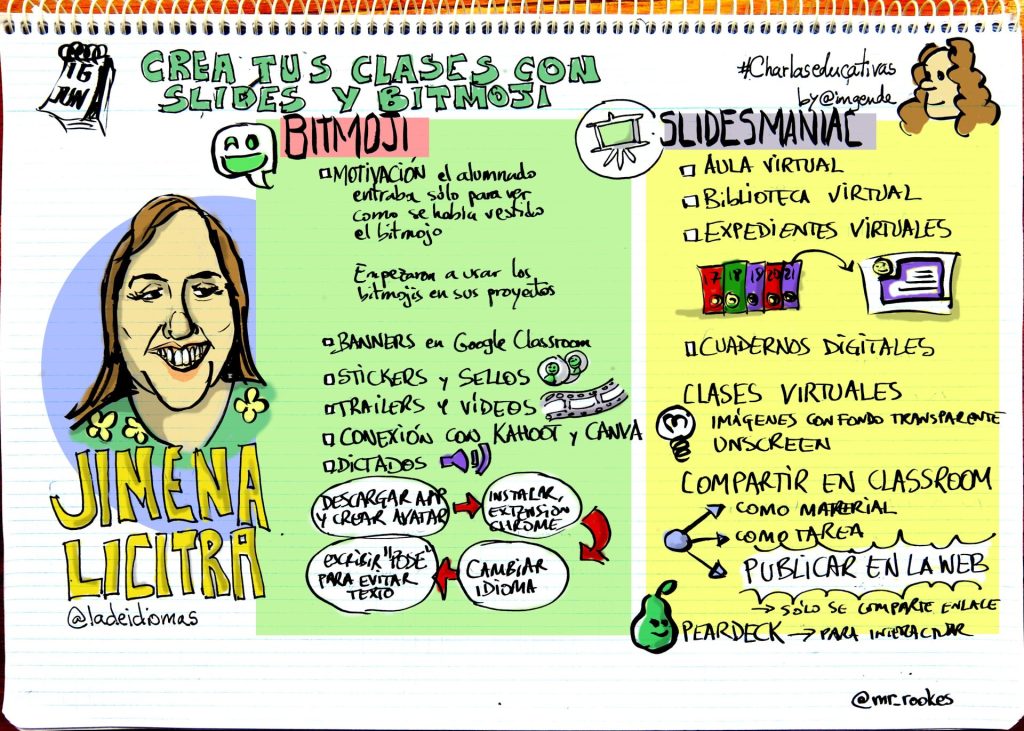 16
JUN
CREA TUS CLASES CON
SLIDES Y BITMOJI
#Charlaseducativas
by @imgende
BITMOJI
MOTIVACIÓN el alumnado
entraba sólo para ver
como se había vestido
el bitmojo
Empezaron a usar los
bitmojis en sus proyectos
BANNERS en Google Classroom
STICKERS y SELLOS
TRAILERS Y VÍDEOS
CONEXIÓN CON KAHOOT y CANVA
DICTADOS
DESCARGAR APP
Y CREAR AVATAR
INSTALAR
EXTENSIÓN
CHROME
CAMBIAR
IDIOMA
ESCRIBIR "PODE"
PARA EVITAR
TEXTO
SLIDESMANIAC
AULA VIRTUAL
BIBLIOTECA VIRTUAL
EXPEDIENTES VIRTUALES
17 18 19 20 21
CUADERNOS DIGITALES
CLASES VIRTUALES
IMÁGENES CON FONDO TRANSPARENTE
UNSCREEN
COMPARTIR EN CLASSROOM
COMO MATERIAL
COMO TAREA
PUBLICAR EN LA WEB
→ SÓLO SE COMPARTE ENLACE
PEARDECK → PARA INTERACTUAR
JIMENA
LICITRA
@ladeidiomas
@mr_rookes